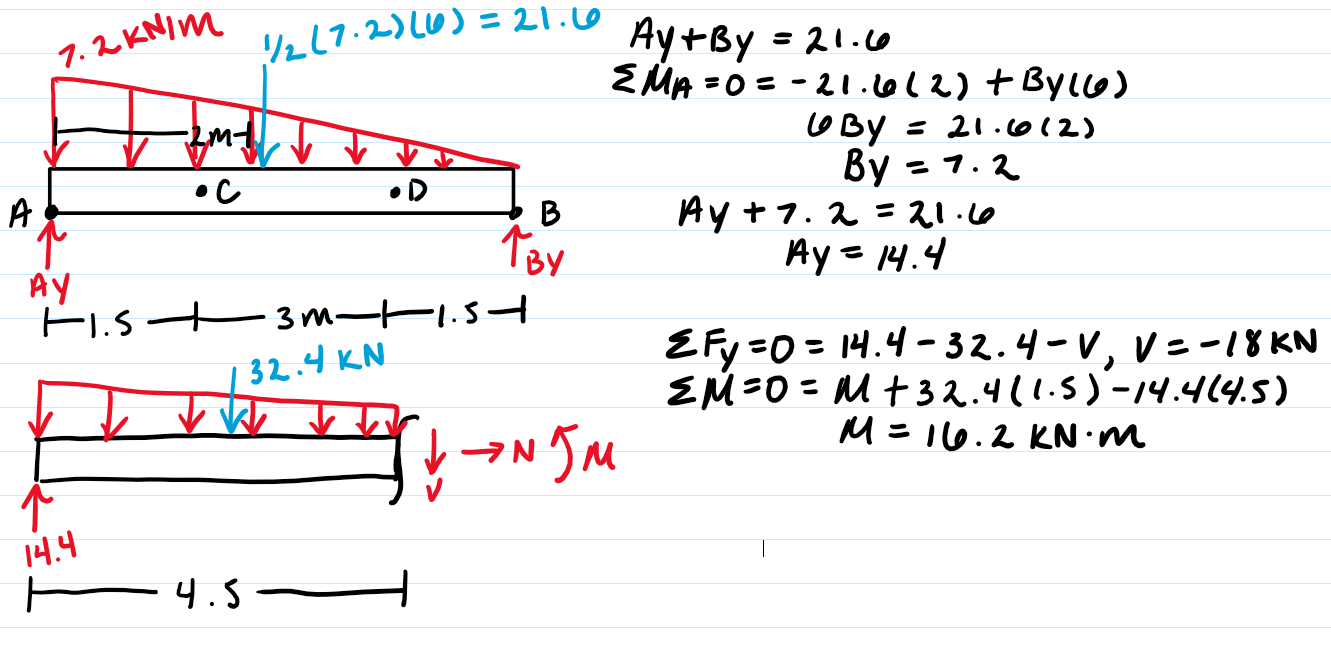 7.2 KN/M
1/2(7.2)(6) = 21.6
2m
•C
•D
A
B
Ay
By
1.5
3m
1.5
32.4 KN
N
M
V
14.4
4.5
Ay+By = 21.6
ΣMA=0 = -21.6(2) + By(6)
6By = 21.6(2)
By = 7.2
Ay + 7.2 = 21.6
Ay = 14.4
ΣFy=0 = 14.4-32.4-V, V=-18KN
ΣM=0 = M+32.4(1.5)-14.4(4.5)
M = 16.2 KN·m